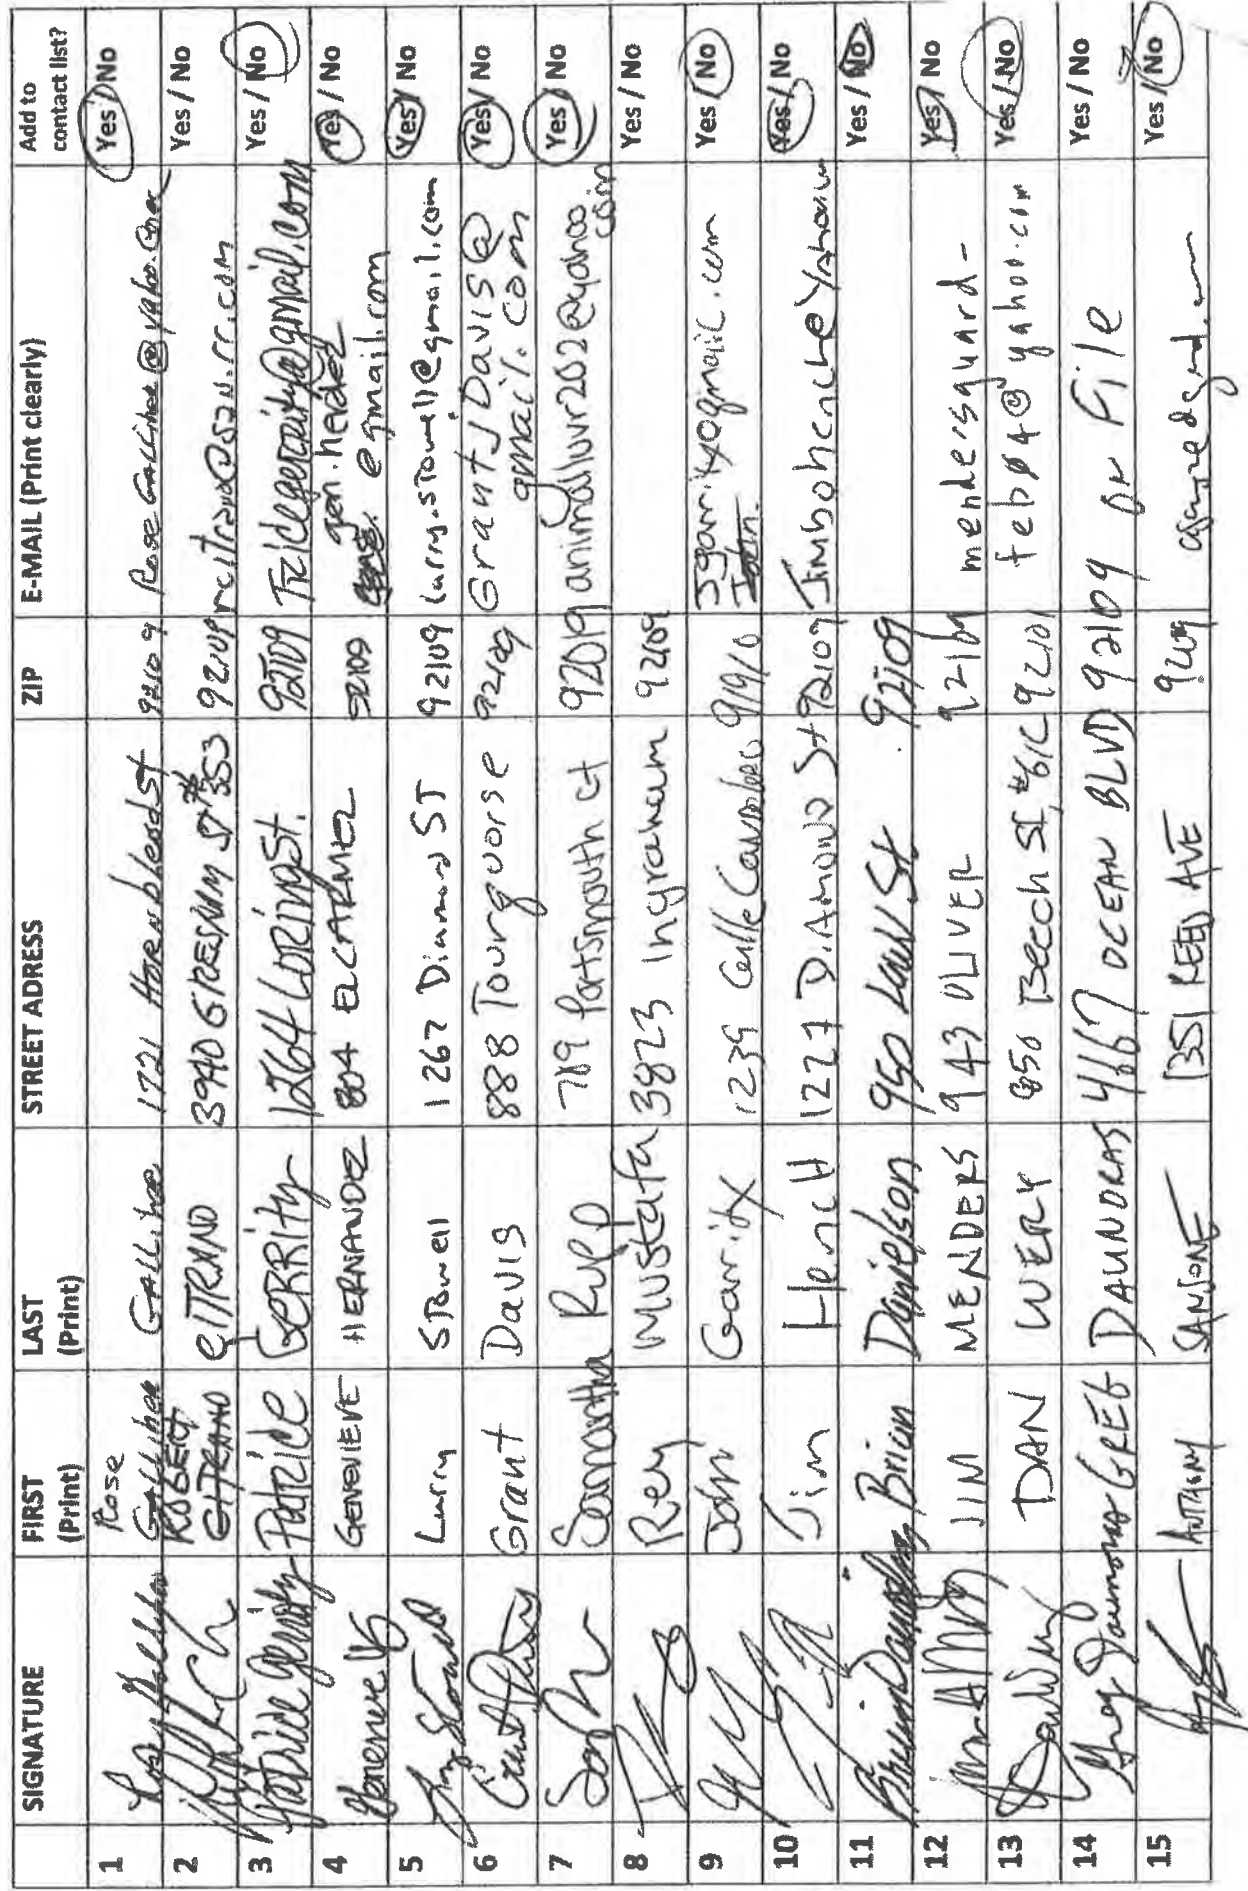 SIGNATURE FIRST (Print) LAST (Print) STREET ADRESS ZIP E-MAIL (Print clearly) Add to contact list?
1 Rose Galliher Gallihee 1721 Hornblend St 92109 RoseGalliher@yahoo.com Yes / No
2 ROBERT GITRAND 3940 GRESHAM ST #353 92109 @san.rr.com Yes / No
3 Patrice Gerrity Patrice Gerrity 1264 LORING St. 92109 Tricidegerrity@gmail.com Yes / No
4 Genevieve GENEVIEVE HERNANDEZ 804 EL CARMEL 92109 gen.herdez@gmail.com Yes / No
5 Larry Stowell Larry Stowell 1267 Diamond ST 92109 larry.stowell@gmail.com Yes / No
6 Grant Davis Grant Davis 888 Tourquorse 92109 GrantJDavis@gmail.com Yes / No
7 Samantha Rupp 719 Portsmouth ct 92019 animalluvr202@yahoo.com Yes / No
8 Rey Mustafa 3823 Ingraham 92109 Yes / No
9 John Garrity 1239 Calle 91910 Jgarrity@gmail.com Yes / No
10 Jim HencH 1227 DiAmond St 92109 Jimbohench@Yahoo Yes / No
11 Brian Danielson Brian Danielson 950 Law St 92109 Yes / No
12 JIM MENDERS 943 OLIVER 92109 mendersguard- Yes / No
13 Dan Wery DAN WERY 850 Beech St, #61C 92101 feb04@yahoo.com Yes / No
14 Greg Daunoras GREG DAUNORAS 4667 OCEAN BLVD 92109 on File Yes / No
15 Anthony SANSONE 1351 REED AVE 92109 Yes / No